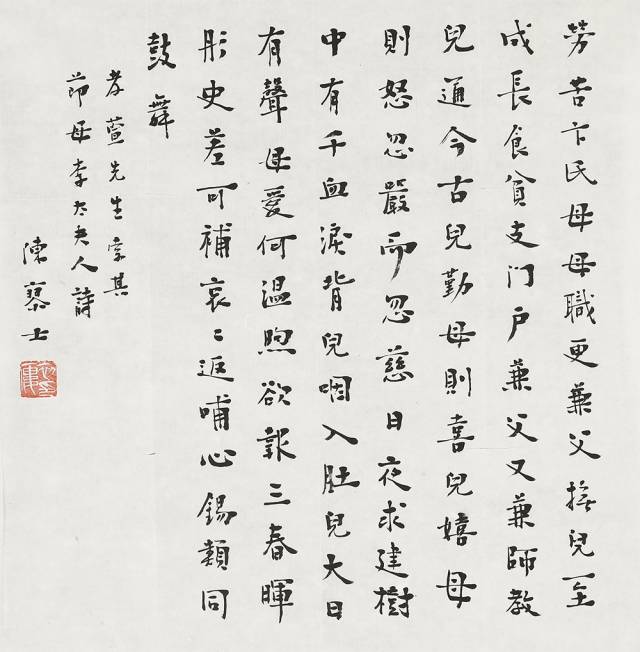 劳苦卞氏母母職更兼父撫兒至
成長食貧支门户兼父又兼師教
兒通今古兒勤母則喜兒嬉母
則怒忽嚴而忽慈日夜求建樹
中有千血淚背兒咽入肚兒大日
有聲母愛何温煦欲報三春暉
彤史差可補哀〻返哺心錫類同
鼓舞
孝萱先生索其
節母李太夫人詩
陳寥士